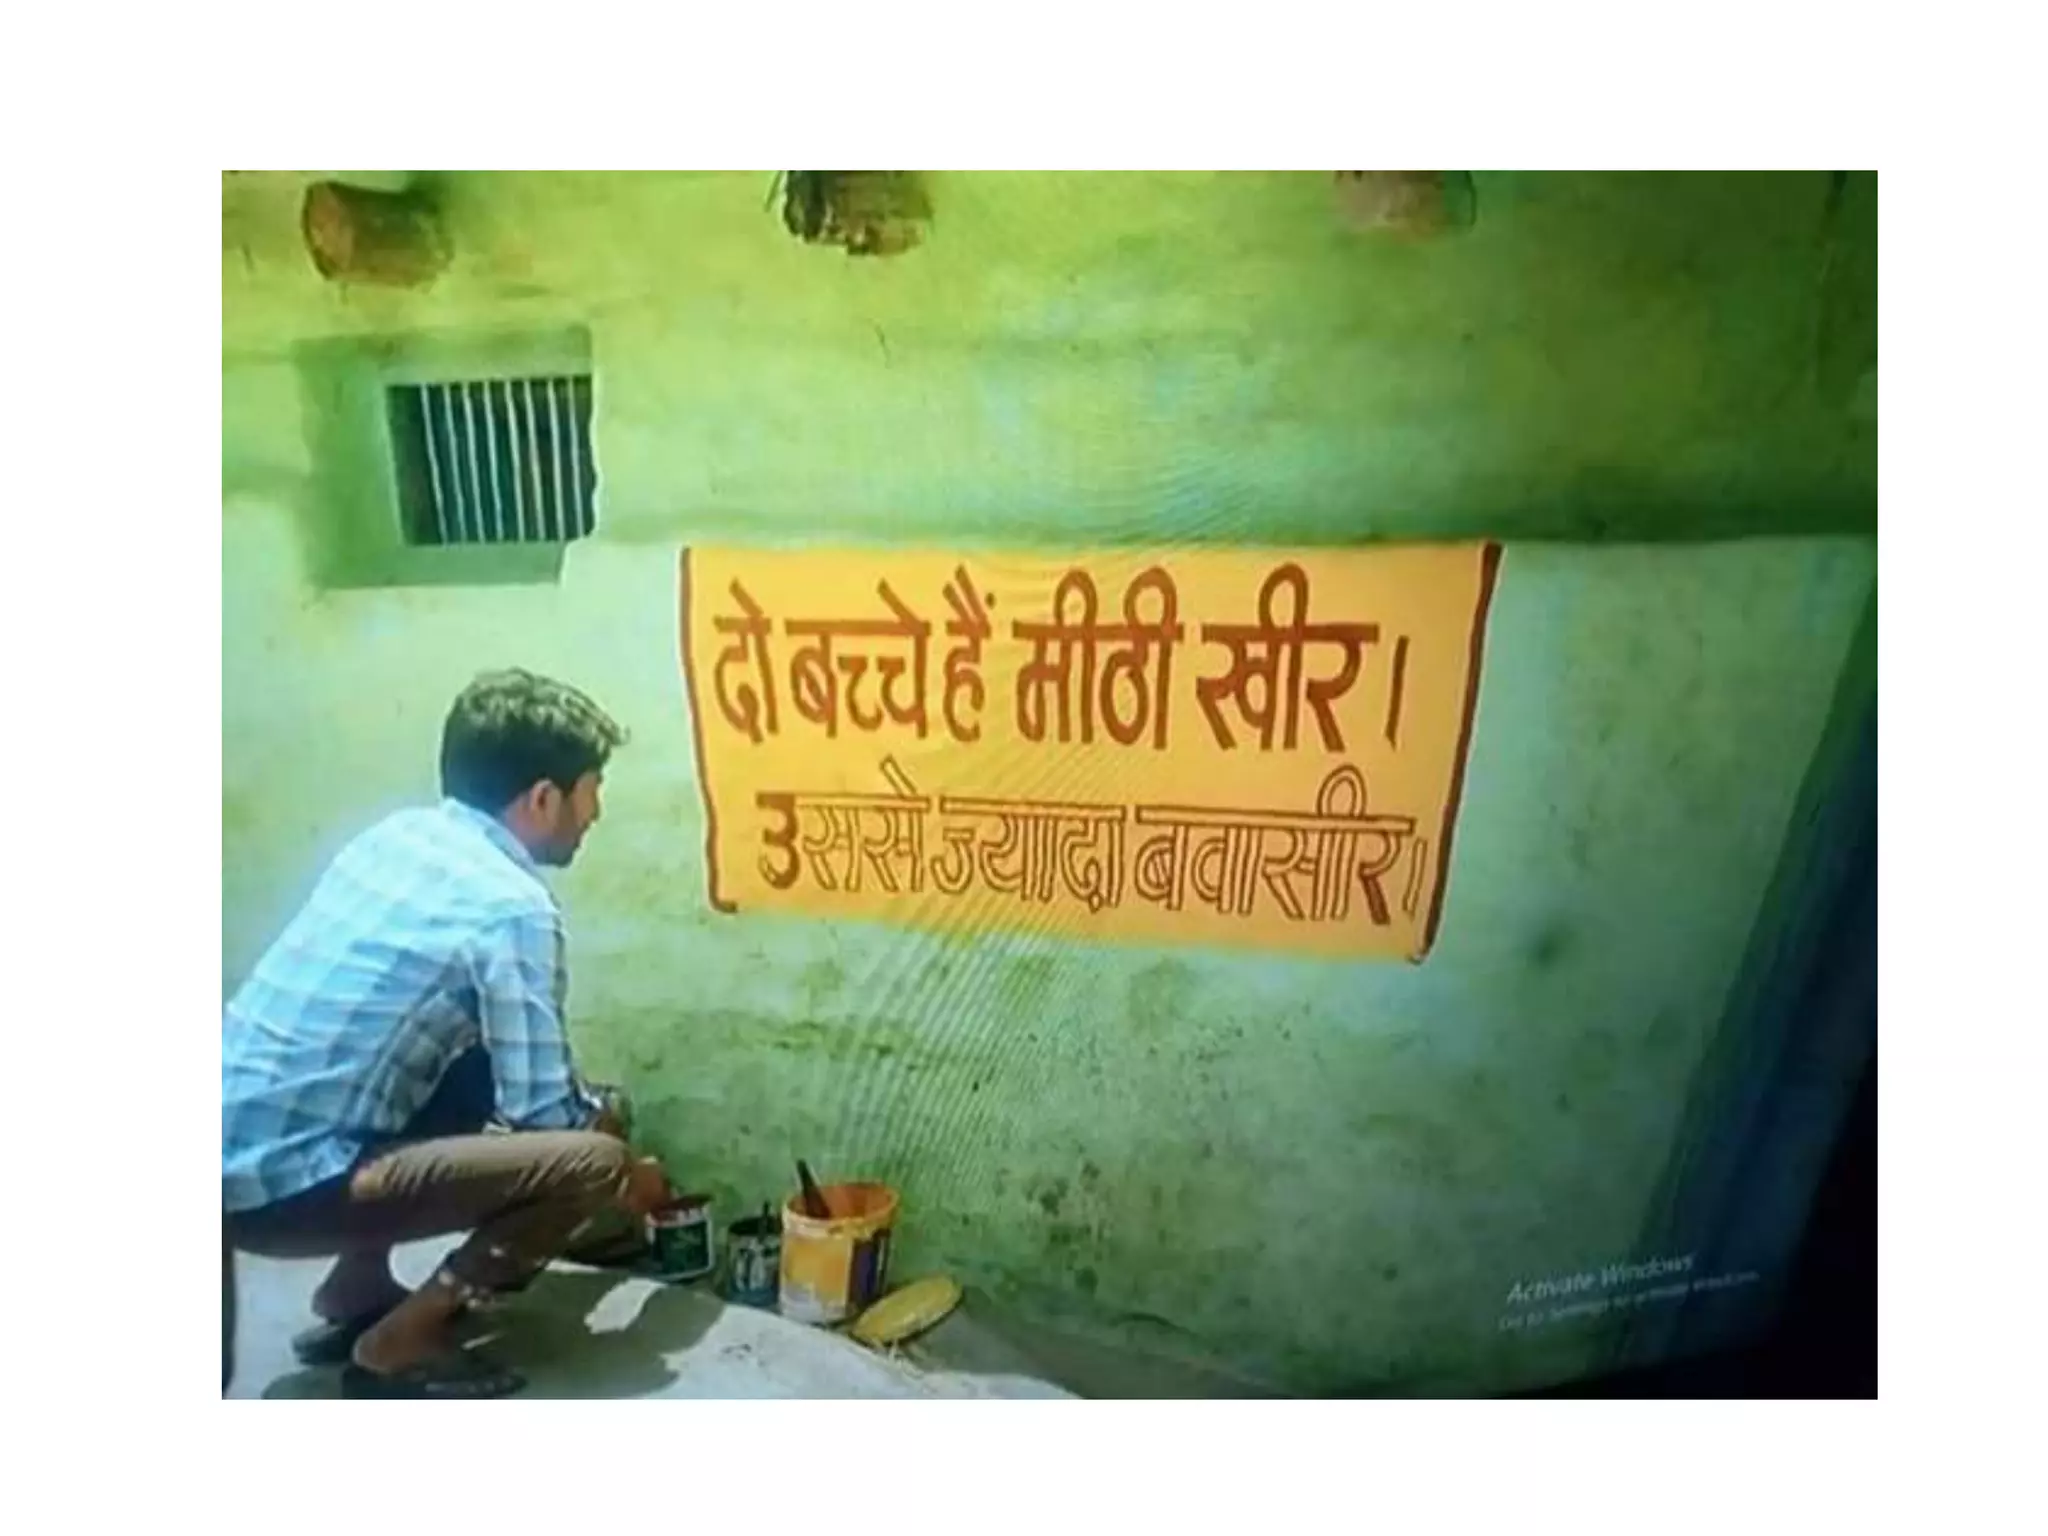 दो बच्चे हैं मीठी खीर।
उससे ज्यादा बवासीर।
Activate Windows
Go to Settings to activate Windows.